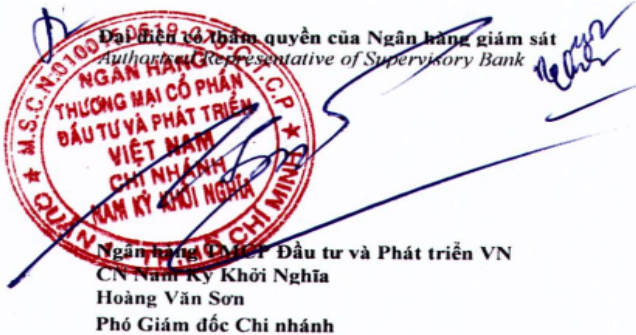 Đại diện có thẩm quyền của Ngân hàng giám sát
Authorised Representative of Supervisory Bank
M.S.C.N:
C.T.C.P
NGÂN HÀNG
THƯƠNG MẠI CỔ PHẦN
ĐẦU TƯ VÀ PHÁT TRIỂN
VIỆT NAM
CHI NHÁNH
NAM KỲ KHỞI NGHĨA
QUẬN
CHÍ MINH
Ngân hàng TMCP Đầu tư và Phát triển VN
CN Nam Kỳ Khởi Nghĩa
Hoàng Văn Sơn
Phó Giám đốc Chi nhánh